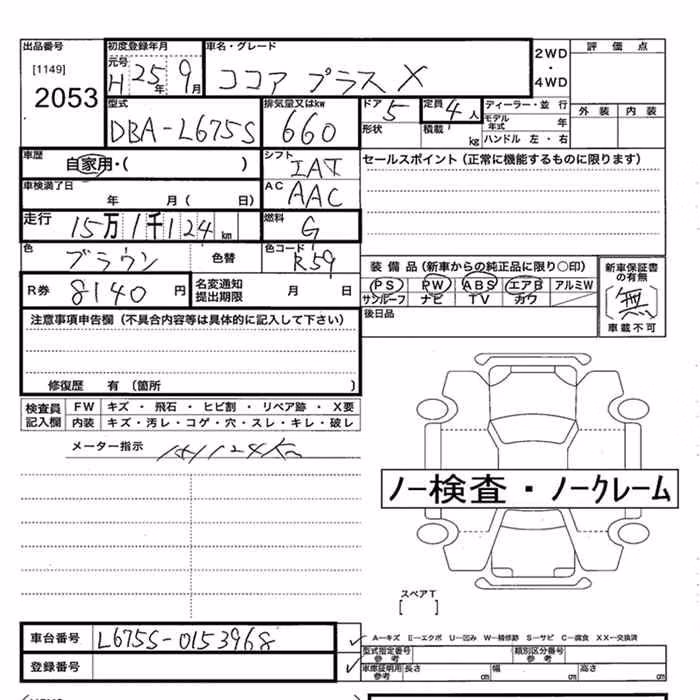 出品番号 初度登録年月 車名・グレード 2WD・4WD 評価点
[1149] 元号 H 25年 9月 ココア プラス X
2053
型式 排気量又はkw ドア 5 定員 4人 ディーラー・並 行 外装 内装
DBA-L675S 660 形状 積載 kg モデル年式 年
ハンドル 左・右
車歴 自家用・( ) シフト IAT セールスポイント (正常に機能するものに限ります)
車検満了日 年 月( 日) AC AAC
走行 15万1千124km 燃料 G
色 ブラウン 色替 色コード R59 装備品(新車からの純正品に限り○印) 新車保証書の有無
R券 8140円 名変通知提出期限 月 日 PS PW ABS エアB アルミW 無
サンルーフ ナビ TV カワ 車載不可
注意事項申告欄 (不具合内容等は具体的に記入して下さい) 後日品
修復歴 有 (箇所 )
検査員記入欄 FW キズ ・ 飛石 ・ ヒビ割 ・ リペア跡 ・ X要
内装 キズ・汚レ・コゲ・穴・スレ・キレ・破レ
メーター指示 151124Km
ノー検査・ノークレーム
スペアT
[ ]
車台番号 L675S-0153968 A-キズ E-エクボ U-凹み W-補修跡 S-サビ C-腐食 XX-交換済
型式指定番号 参考 類別区分番号 参考
登録番号 車庫証明用 参考 長さ cm 幅 cm 高さ cm